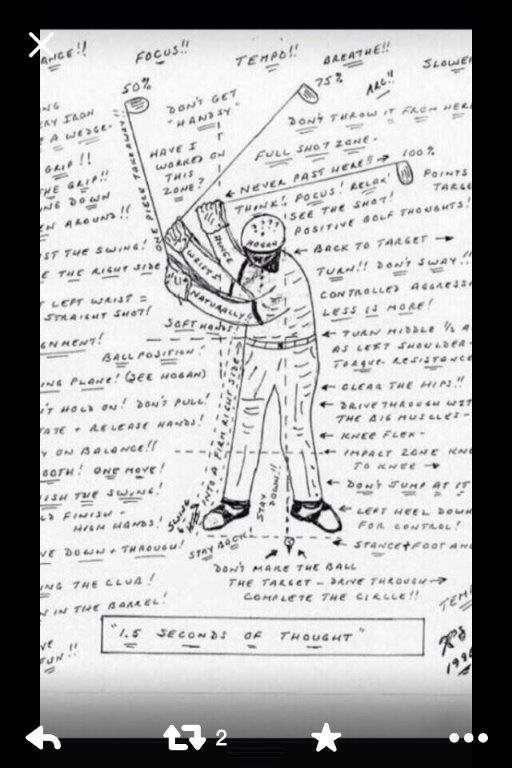 ANCE!!
FOCUS!!
TEMPO!!
BREATHE!!
SLOWER
50%
75%
ARC!!
ING
RY IRON
E A WEDGE-
DON'T GET
"HANDSY"
DON'T THROW IT FROM HERE
GRIP!!
HE GRIP!!
ING DOWN
EN AROUND!!
ONE PIECE TAKEAWAY!!
HAVE I
WORKED ON
THIS
ZONE?
FULL SHOT ZONE-
100%
NEVER PAST HERE!!
THINK! FOCUS! RELAX!
SEE THE SHOT!
POSITIVE GOLF THOUGHTS!
POINTS
TARGE
IST THE SWING!
E THE RIGHT SIDE
HINGE
WRISTS
NATURALLY!!
? ? ? ?
HOGAN
BACK TO TARGET
TURN!! DON'T SWAY!!
CONTROLLED AGGRESSI
LESS IS MORE!
T LEFT WRIST =
STRAIGHT SHOT!
SOFT HANDS!
GNMENT!
BALL POSITION!
TURN MIDDLE 1/2 A
AS LEFT SHOULDER-
TORQUE- RESISTANCE
ING PLANE! (SEE HOGAN)
CLEAR THE HIPS!!
'T HOLD ON! DON'T PULL!
TATE + RELEASE HANDS!
DRIVE THROUGH WIT
THE BIG MUSCLES-
Y ON BALANCE!!
KNEE FLEX-
OOTH! ONE MOVE!
IMPACT ZONE KNE
TO KNEE
ISH THE SWING!
DON'T JUMP AT IT
LD FINISH-
HIGH HANDS!
SWING
INTO A FIRM RIGHT SIDE
STAY
DOWN!!
LEFT HEEL DOWN
FOR CONTROL!
VE DOWN + THROUGH!
STAY BACK
STANCE + FOOT AN
DON'T MAKE THE BALL
THE TARGET - DRIVE THROUGH
COMPLETE THE CIRCLE!!
ING THE CLUB!
N IN THE BARREL!
TEM
"1.5 SECONDS OF THOUGHT"
VE
FUN!!
2